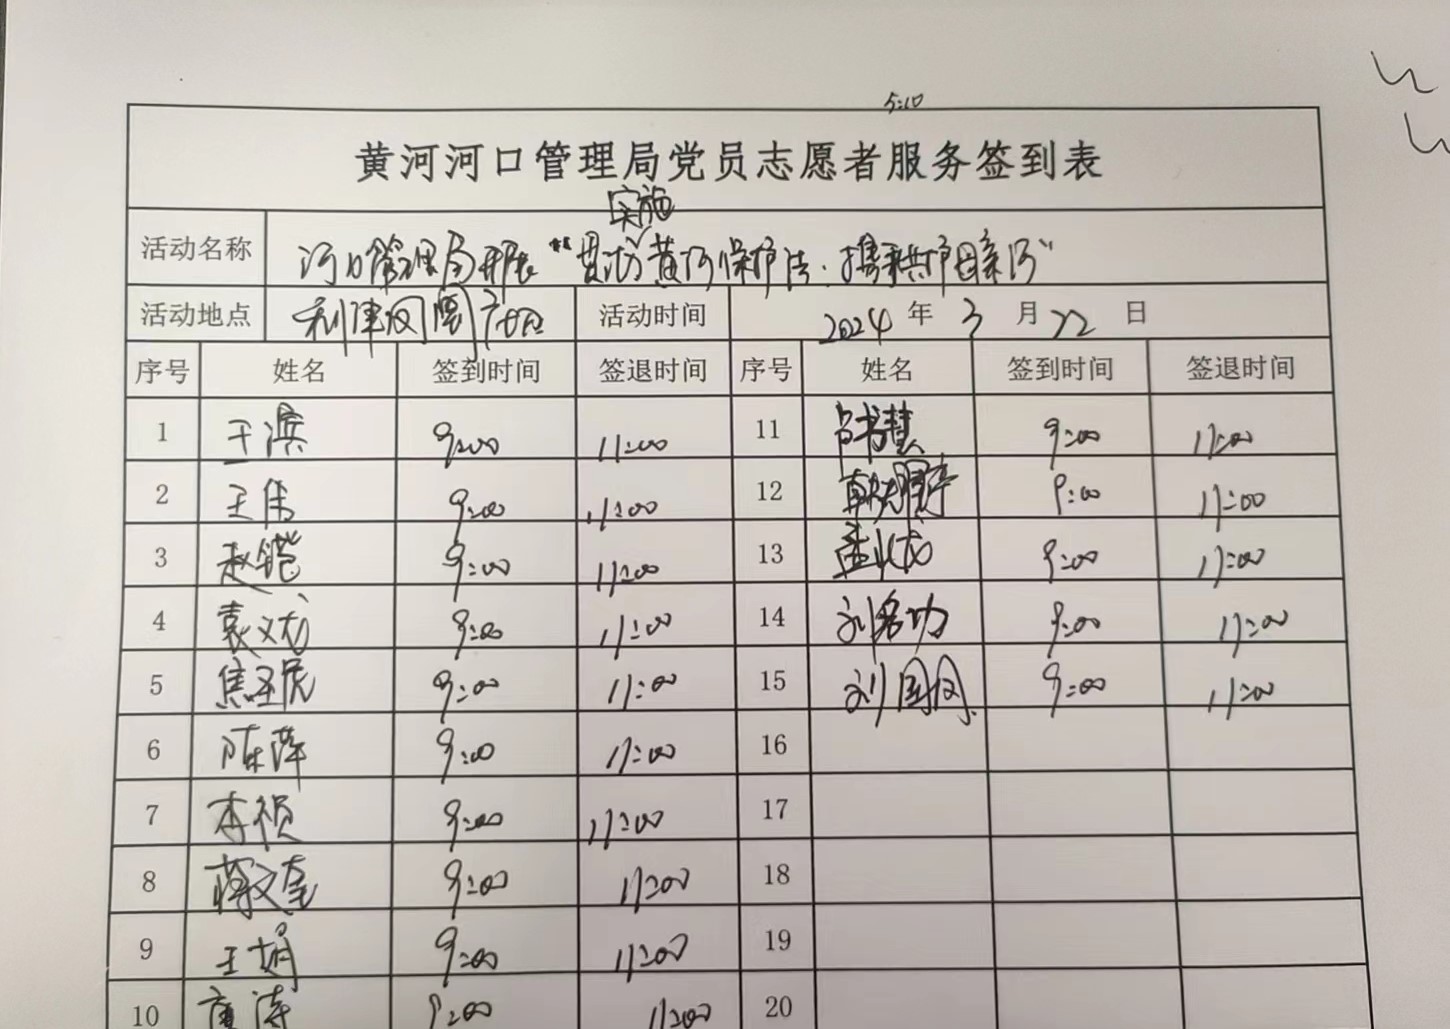 5:10
黄河河口管理局党员志愿者服务签到表
实施
活动名称 河口管理局开展“贯彻黄河保护法·携手共护母亲河”
活动地点 利津 活动时间 2024年3月22日
序号 姓名 签到时间 签退时间 序号 姓名 签到时间 签退时间
1 王滨 9:00 11:00 11 吕书慧 9:00 11:00
2 王伟 9:00 11:00 12 9:00 11:00
3 赵铠 9:00 11:00 13 9:00 11:00
4 袁文龙 9:00 11:00 14 刘名功 9:00 11:00
5 焦玉虎 9:00 11:00 15 刘国同 9:00 11:00
6 陈萍 9:00 11:00 16
7 李祯 9:00 11:00 17
8 蒋文奎 9:00 11:00 18
9 王娟 9:00 11:00 19
10 涛 9:00 11:00 20